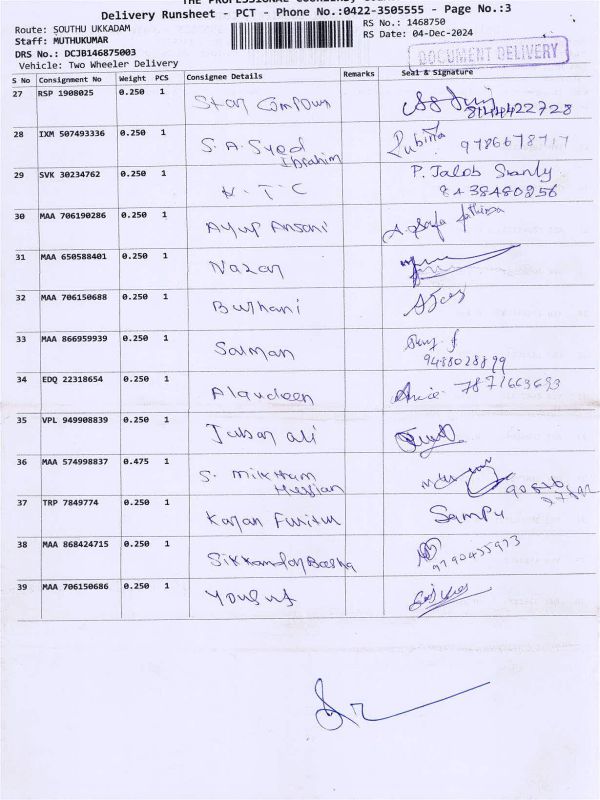 Delivery Runsheet - PCT - Phone No.:0422-3505555 - Page No.:3
Route: SOUTHU UKKADAM
RS No.: 1468750
Staff: MUTHUKUMAR
RS Date: 04-Dec-2024
DRS No.: DCJB146875003
DOCUMENT DELIVERY
Vehicle: Two Wheeler Delivery
S No Consignment No Weight PCS Consignee Details Remarks Seal & Signature
27 RSP 1908025 0.250 1 Star
8144422728
28 IXM 507493336 0.250 1 S. A. Syed Rubina
Ibrahim
29 SVK 30234762 0.250 1 N. T. C P. Jalob
8438480256
30 MAA 706190286 0.250 1 Ayup Ansari
31 MAA 650588401 0.250 1 Nazar
32 MAA 706150688 0.250 1 Burhani
33 MAA 866959939 0.250 1 Salman
9488028899
34 EDQ 22318654 0.250 1 Alaudeen 7871663693
35 VPL 949908839 0.250 1 Jubar ali
36 MAA 574998837 0.475 1 S.
37 TRP 7849774 0.250 1 Sampu
38 MAA 868424715 0.250 1 Sikkandar Basha
39 MAA 706150686 0.250 1 Yousuf